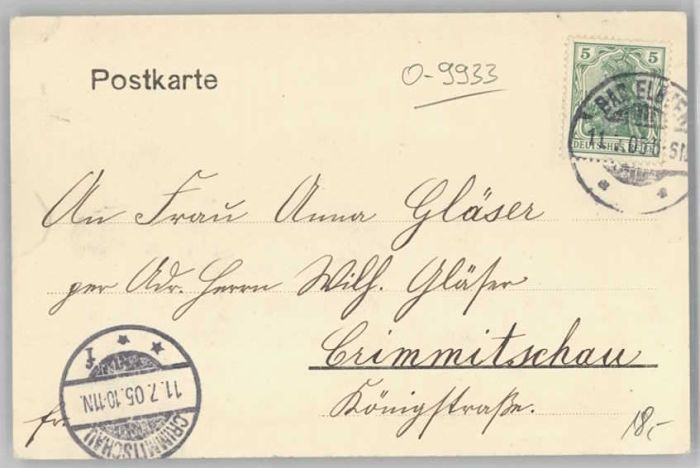 Postkarte
O-9933
5 5
DEUTSCHES REICH
BAD ELSTER
11.7.05.
An Frau Anna Gläser
per Adr. Herrn Wilh. Gläser
Crimmitschau
Königstraße.
11.7.05.10-11N.
CRIMMITSCHAU
18,-